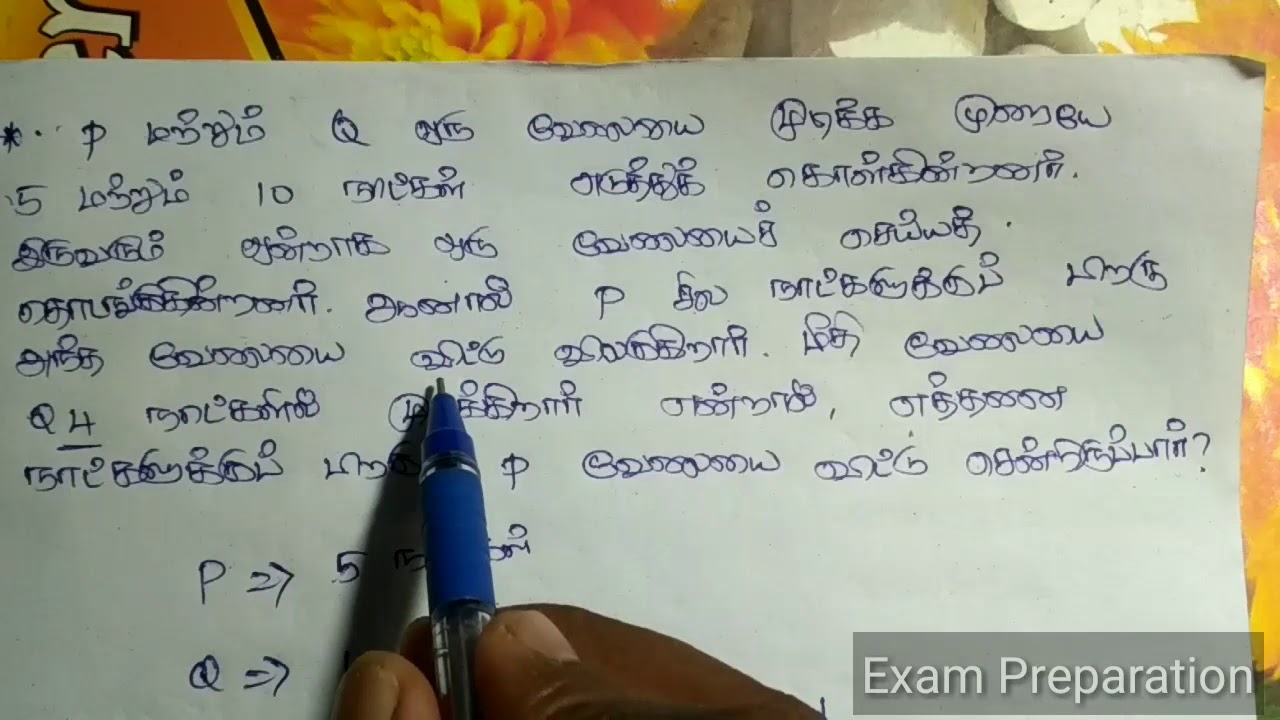 * P மற்றும் Q ஒரு வேலையை முடிக்க முறையே
5 மற்றும் 10 நாட்கள் எடுத்துக் கொள்கின்றனர்.
இருவரும் ஒன்றாக ஒரு வேலையைச் செய்யத்
தொடங்குகின்றனர். ஆனால் P சில நாட்களுக்குப் பிறகு
அந்த வேலையை விட்டு விலகுகிறார். மீதி வேலையை
Q 4 நாட்களில் முடிக்கிறார் என்றால், எத்தனை
நாட்களுக்குப் பிறகு P வேலையை விட்டு சென்றிருப்பார்?
P => 5 நாட்கள்
Q =>
Exam Preparation